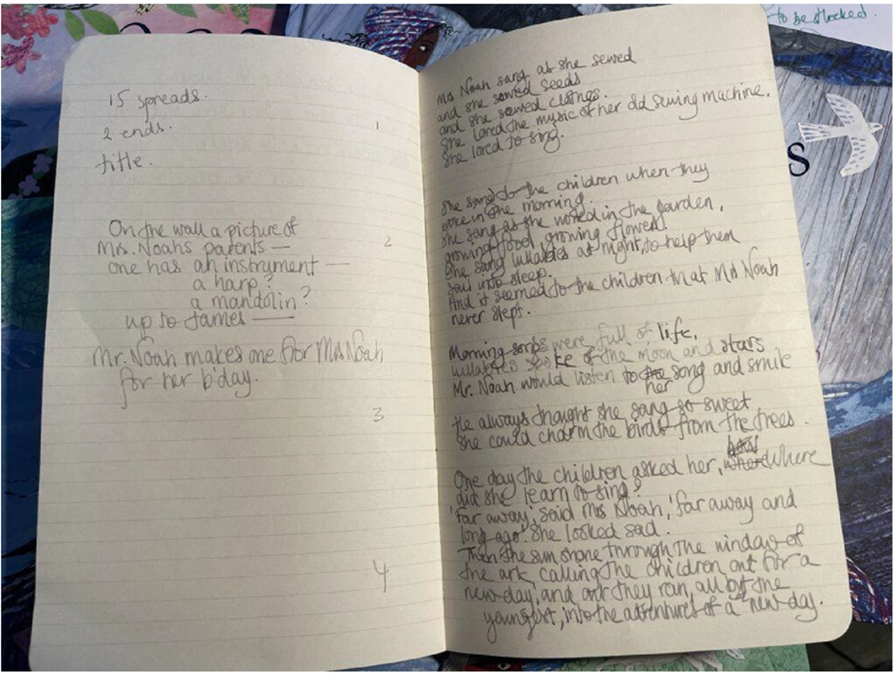 to be stocked.
S
15 spreads.
2 ends.
title.
On the wall a picture of
Mrs. Noahs parents —
one has an instrument —
a harp?
a mandolin?
up to James —
Mr. Noah makes one for Mrs Noah
for her b'day.
1
2
3
4
Mrs Noah sang as she sewed
and she sowed seeds
and she sewed clothes.
She loved the music of her old sewing machine.
She loved to sing.
She sang to the children when they
woke in the morning.
She sang as she worked in the garden,
growing food, growing flowers.
She sang lullabies at night, to help them
sail into sleep.
And it seemed to the children that Mrs Noah
never slept.
Morning songs were full of life,
lullabies spoke of the moon and stars
Mr. Noah would listen to the her song and smile
He always thought she sang so sweet
she could charm the birds from the trees.
One day the children asked her, Where
did she learn to sing?
'Far away,' said Mrs Noah, 'far away and
long ago.' She looked sad.
Then the sun shone through the window of
the ark calling the children out for a
new day, and out they ran, all but the
youngest, into the adventures of a new day.